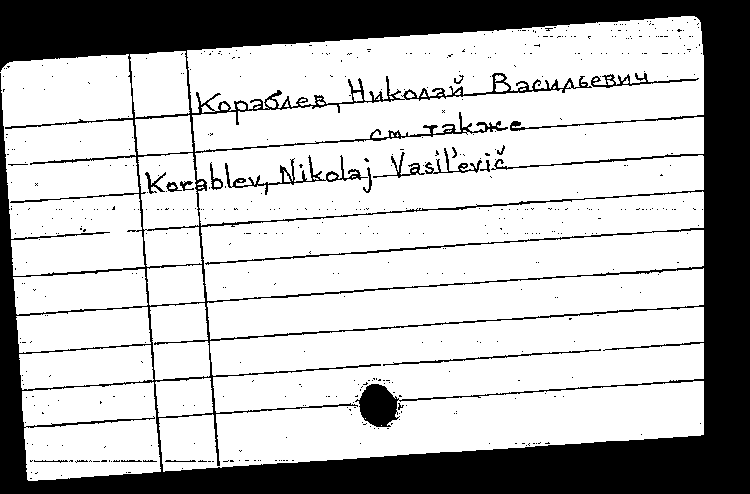 Кораблев, Николай Васильевич
см. также
Korablev, Nikolaj Vasil'evič